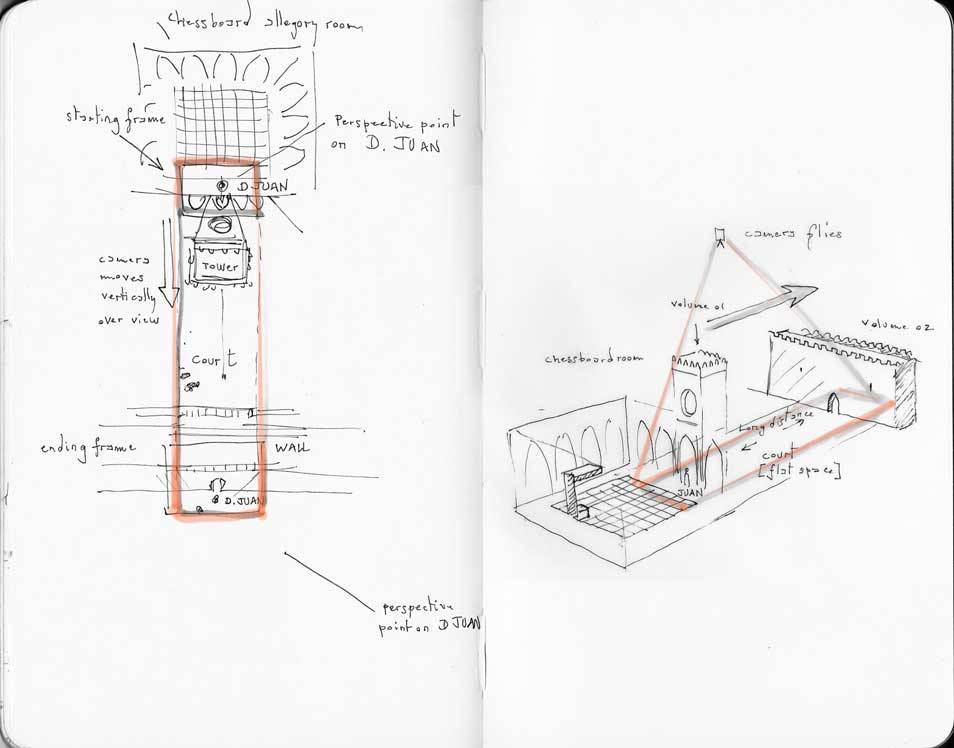 chessboard allegory room
starting frame
Perspective point
on D. JUAN
D JUAN
TOWER
camera
moves
vertically
over view
COURT
ending frame
WALL
D. JUAN
perspective
point on D JUAN
camera flies
volume 01
volume 02
chessboard room
Long distance
court
[flat space]
JUAN